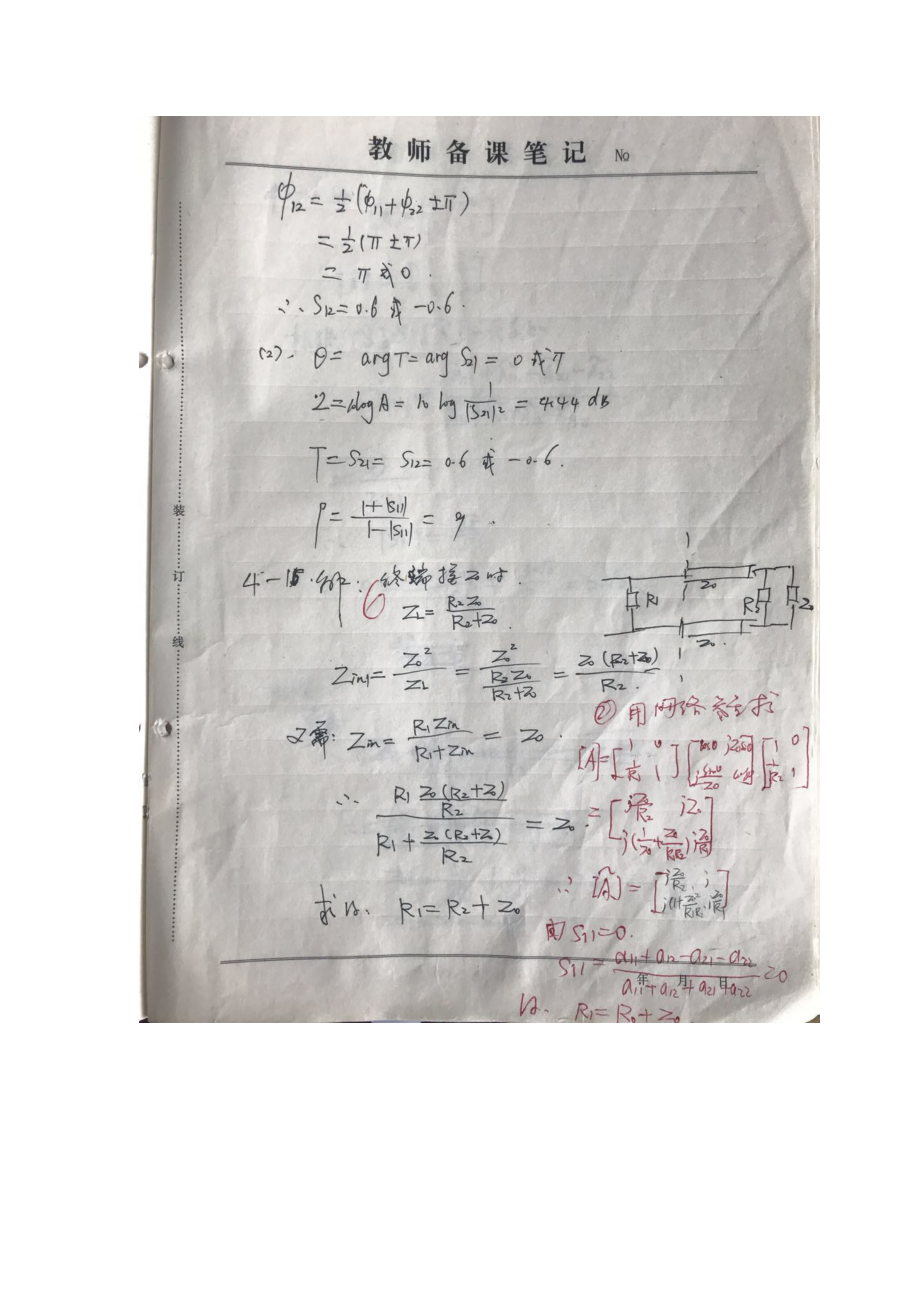 教师备课笔记 No
φ12 = 1/2 (φ11+φ22 ±π)
= 1/2 (π ±π)
= π 或 0 .
∴ S12 = 0.6 或 -0.6 .
(2). θ = arg T = arg S21 = 0 或 π
= 10 log 1/|S21|² = 4.44 dB
T = S21 = S12 = 0.6 或 -0.6 .
ρ = (1+|S11|)/(1-|S11|) = 9 .
4-16 解: 终端接 Z0 时.
ZL = R2Z0/(R2+Z0)
Z0
R1
Z0
Zin1 = Z0²/ZL = Z0²/(R2Z0/(R2+Z0)) = Z0(R2+Z0)/R2 .
又需: Zin = R1Zin/(R1+Zin) = Z0 .
∴ (R1 Z0(R2+Z0)/R2)/(R1 + Z0(R2+Z0)/R2) = Z0 .
求得. R1 = R2 + Z0
② 用网络 求
[A] = [1 0; 1/R1 1] [cosθ jZ0sinθ; jsinθ/Z0 cosθ] [1 0; 1/R2 1]
= [jZ0/R2 jZ0; j(1/Z0+Z0/R1R2) jZ0/R1]
∴ [A] = [jZ0/R2 j; j(1+Z0²/R1R2) jZ0/R1]
由 S11=0.
S11 = (a11+a12-a21-a22)/(a11+a12+a21+a22) = 0
得. R1 = R0 + Z0
年 月 日
装
订
线